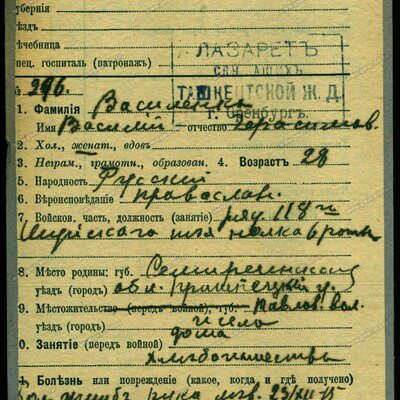 уберніа
уѣздъ
лечебница
пец. госпиталь (патронажъ)
ЛАЗАРЕТЪ
СЛУЖАЩИХЪ
ТАШКЕНТСКОЙ Ж. Д.
г. Оренбургъ.
№ 296.
1. Фамилія Василенко
Имя Василій отчество Герасимов.
2. Хол., женат., вдов.
3. Неграм., грамотн., образован. 4. Возрастъ 28
5. Народность Русскій
6. Вѣроисповѣданіе православн.
7. Войсков. часть, должность (занятіе) ряд. 118 го
Шуйскаго полка роты
8. Мѣсто родины: губ. Семиреченской
уѣздъ (городъ) обл. у.
9. Мѣстожительство (передъ войной), губ. Павлов. вол.
уѣздъ (городъ) и село
0. Занятіе (передъ войной) дома
Хлѣбопашество
1. Болѣзнь или поврежденіе (какое, когда и гдѣ получено)
рука 23/XII 15